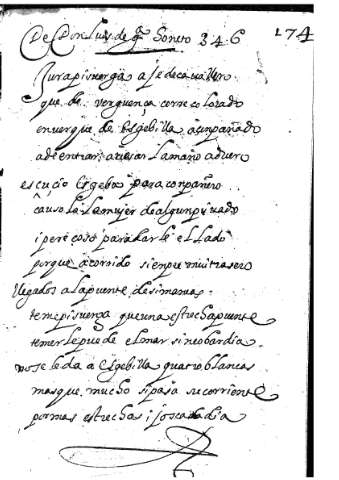 De Don Luis de gª Soneto 346 174
Jura pisuerga a fe de cauallero
que de verguença corre colorado
en ver que de Esgebilla acunpañado
a de entrar a uesar la mano a duero
es çuçio Esgeba para conpañero
causo la la mujer de algun priuado
i pereçoso para darle el lado
porque a corrido sienpre mui trasero
llegados a la puente de simancas
teme pisuerga que una estrecha puente
temerle puede el mar sin cobardia
no se le da a Esgebilla quatro blancas
mas que mucho si pasa su corriente
por mas estrechas i jos cada dia